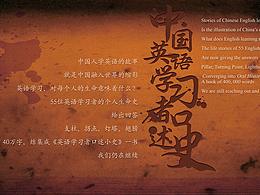 中国
英语
学习
者口
述史
中国人学英语的故事
就是中国融入世界的缩影
英语学习，对每个人的生命意味着什么？
55位英语学习者的个人生命史
给出回答
支柱，拐点，灯塔，翅膀
40万字，结集成《英语学习者口述小史》一书
我们仍在继续
Stories of Chinese English le
Is the illustration of China's
What does English learning
The life stories of 55 English
Are now giving the answers
Pillar, Turning Point, Light
Converging into Oral Histor
We are still reaching out and